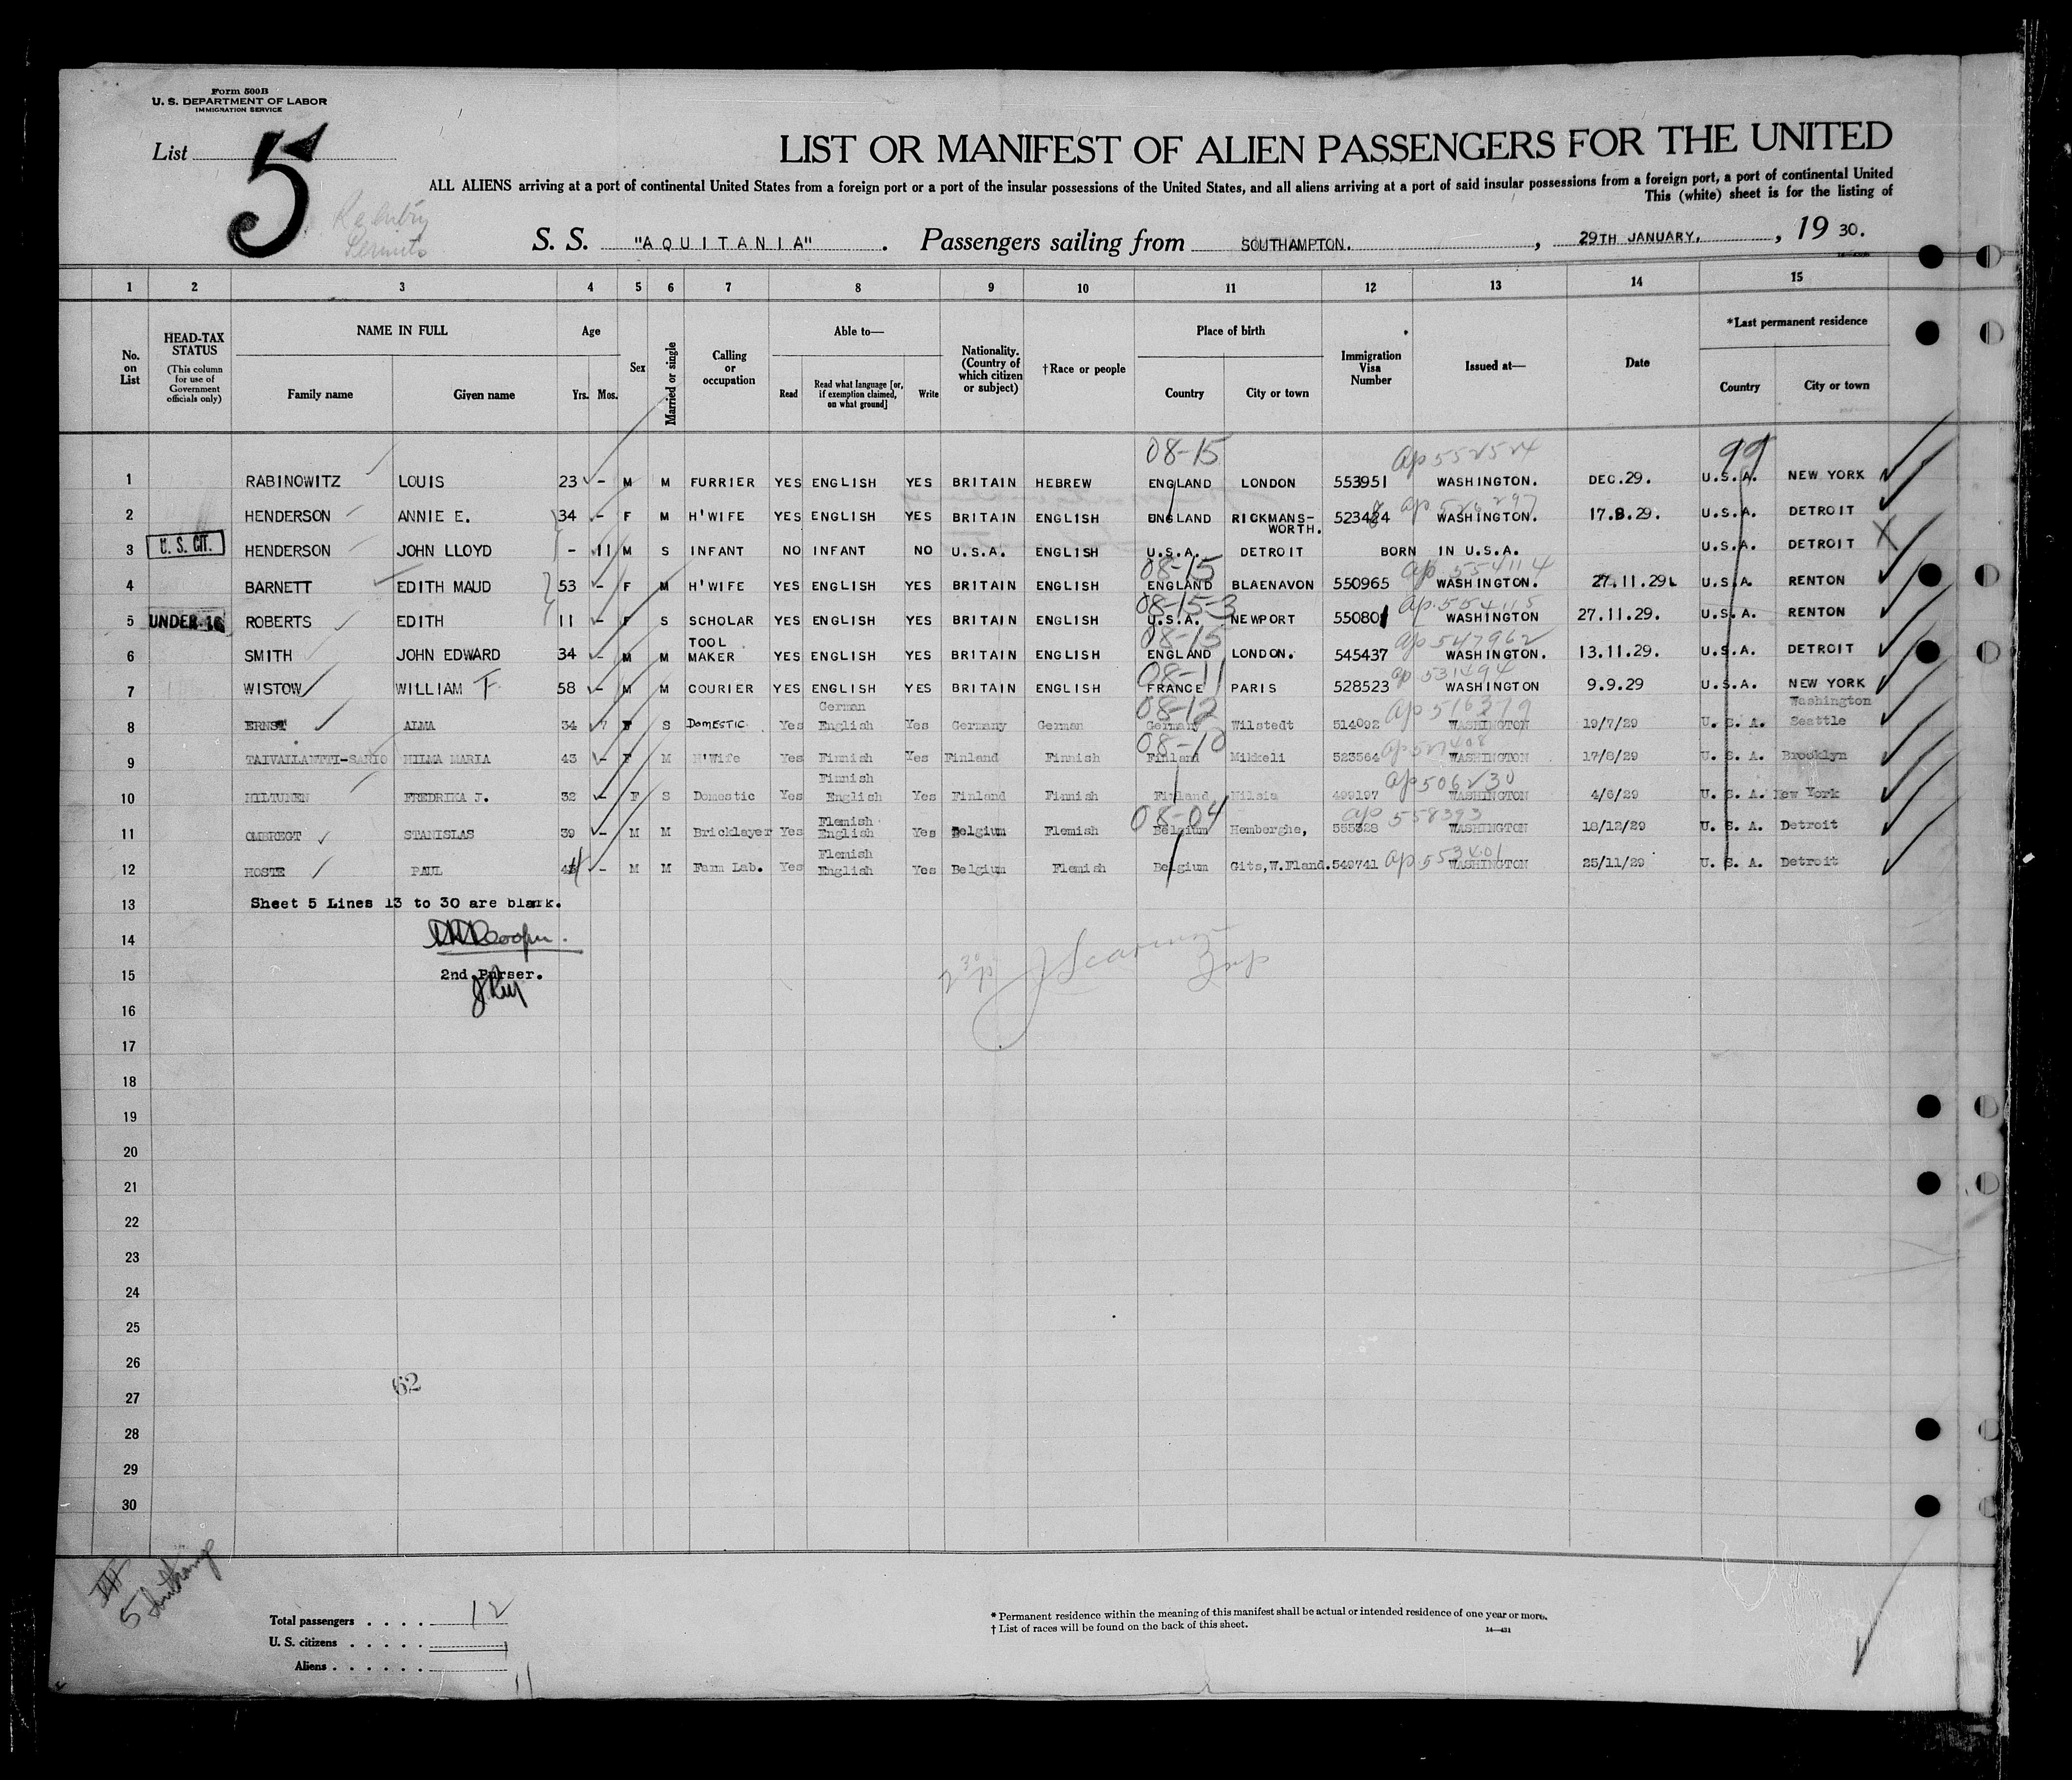 Form 500B
U. S. DEPARTMENT OF LABOR
IMMIGRATION SERVICE
List 5
Reentry
Permits
LIST OR MANIFEST OF ALIEN PASSENGERS FOR THE UNITED
ALL ALIENS arriving at a port of continental United States from a foreign port or a port of the insular possessions of the United States, and all aliens arriving at a port of said insular possessions from a foreign port, a port of continental United
This (white) sheet is for the listing of
S. S. "AQUITANIA". Passengers sailing from SOUTHAMPTON. , 29TH JANUARY, , 19 30.
1 2 3 4 5 6 7 8 9 10 11 12 13 14 15
No. on List
HEAD-TAX STATUS
(This column for use of Government officials only)
NAME IN FULL
Family name Given name
Age
Yrs. Mos.
Sex
Married or single
Calling or occupation
Able to—
Read
Read what language [or, if exemption claimed, on what ground]
Write
Nationality. (Country of which citizen or subject)
†Race or people
Place of birth
Country City or town
Immigration Visa Number
Issued at—
Date
*Last permanent residence
Country City or town
08-15 ap 552524 99
1 RABINOWITZ LOUIS 23 - M M FURRIER YES ENGLISH YES BRITAIN HEBREW ENGLAND LONDON 553951 WASHINGTON. DEC.29. U.S.A. NEW YORK
2 HENDERSON ANNIE E. 34 - F M H'WIFE YES ENGLISH YES BRITAIN ENGLISH ENGLAND RICKMANS-WORTH. 523484 WASHINGTON. 17.8.29. U.S.A. DETROIT
3 U. S. CIT. HENDERSON JOHN LLOYD - 11 M S INFANT NO INFANT NO U.S.A. ENGLISH U.S.A. DETROIT BORN IN U.S.A. U.S.A. DETROIT X
08-15 ap 554114
4 BARNETT EDITH MAUD 53 - F M H'WIFE YES ENGLISH YES BRITAIN ENGLISH ENGLAND BLAENAVON 550965 WASHINGTON. 27.11.29. U.S.A. RENTON
08-15-3 ap. 554115
5 UNDER 16 ROBERTS EDITH 11 - F S SCHOLAR YES ENGLISH YES BRITAIN ENGLISH U.S.A. NEWPORT 550801 WASHINGTON 27.11.29. U.S.A. RENTON
08-15 ap 547962
6 SMITH JOHN EDWARD 34 - M M TOOL MAKER YES ENGLISH YES BRITAIN ENGLISH ENGLAND LONDON. 545437 WASHINGTON. 13.11.29. U.S.A. DETROIT
08-11 ap 531494
7 WISTOW WILLIAM F 58 - M M COURIER YES ENGLISH YES BRITAIN ENGLISH FRANCE PARIS 528523 WASHINGTON 9.9.29 U.S.A. NEW YORK
08-12 ap 516379
8 ERNST ALMA 34 7 F S DOMESTIC Yes German English Yes Germany German Germany Wilstedt 514092 WASHINGTON 19/7/29 U. S. A. Washington Seattle
08-10
9 TAIVAILANTTI-SANIO HILMA MARIA 43 - F M H'Wife Yes Finnish Yes Finland Finnish Finland Mikkeli 523564 WASHINGTON 17/8/29 U. S. A. Brooklyn
ap 506230
10 HILTUNEN FREDRIKA J. 32 - F S Domestic Yes Finnish English Yes Finland Finnish Finland Nilsia 499197 WASHINGTON 4/6/29 U. S. A. New York
08-04 ap 558393
11 OMBREGT STANISLAS 39 - M M Bricklayer Yes Flemish English Yes Belgium Flemish Belgium Hemberghe, 555328 WASHINGTON 18/12/29 U. S. A. Detroit
12 HOSTE PAUL 44 - M M Farm Lab. Yes Flemish English Yes Belgium Flemish Belgium Gits,W.Fland. 549741 ap 553401 WASHINGTON 25/11/29 U. S. A. Detroit
13 Sheet 5 Lines 13 to 30 are blank.
14
15 2nd Purser.
16
17
18
19
20
21
22
23
24
25
26
62
27
28
29
30
5 Southamp
Total passengers . . . . 12
U. S. citizens . . . . . 1
Aliens . . . . . . 11
* Permanent residence within the meaning of this manifest shall be actual or intended residence of one year or more.
† List of races will be found on the back of this sheet.
14—431